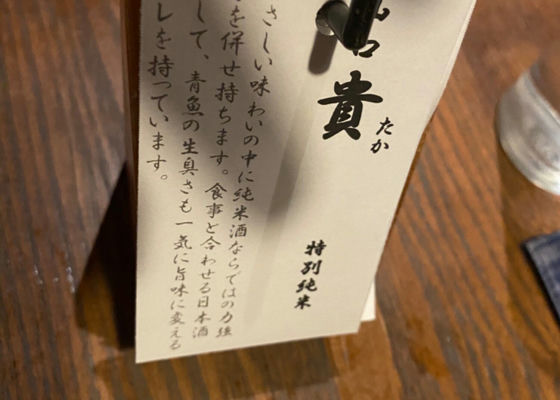 貴
たか
特別純米
さしい味わいの中に純米酒ならではの力強
を併せ持ちます。食事と合わせる日本酒
して、青魚の生臭さも一気に旨味に変える
レを持っています。